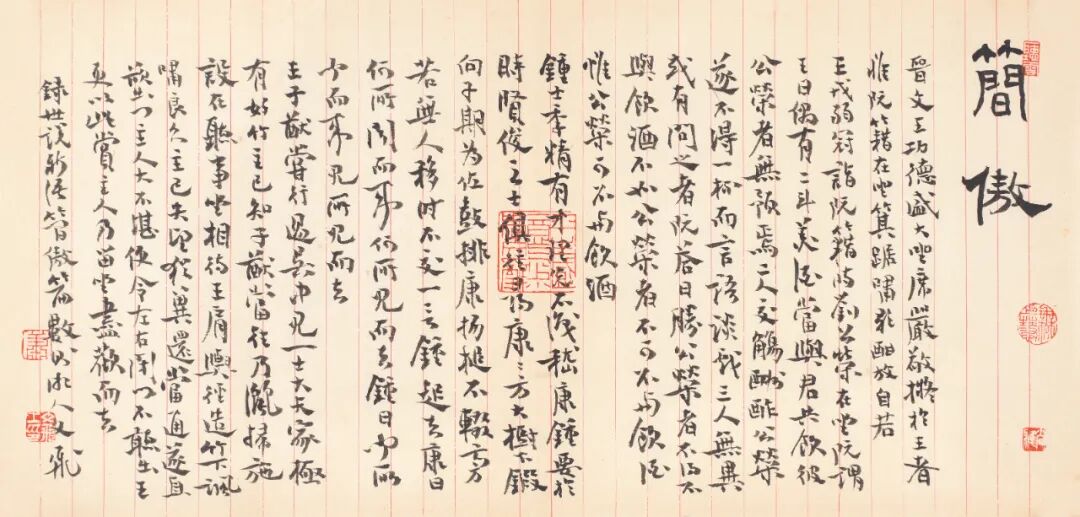 簡傲
晉文王功德盛大坐席嚴敬擬於王者
惟阮籍在坐箕踞嘯歌酣放自若
王戎弱冠詣阮籍時劉公榮在坐阮謂
王曰偶有二斗美酒當與君共飲彼
公榮者無預焉二人交觴酬酢公榮
遂不得一杯而言語談戲三人無異
或有問之者阮答曰勝公榮者不得不
與飲酒不如公榮者不可不与飲酒
惟公榮可不与飲酒
鍾士季精有才理先不識嵇康鍾要於
時賢俊之士俱往尋康々方大樹下鍛
向子期為佐鼓排康揚槌不輟旁
若無人移時不交一言鍾起去康曰
何所聞而來何所見而去鍾曰聞所
聞而來見所見而去
王子猷嘗行過吳中見一士大夫家極
有好竹主已知子猷當往乃灑掃施
設在聽事坐相待王肩輿徑造竹下諷
嘯良久主已失望猶冀還當通遂直
欲出門主人大不堪便令左右閉門不聽出王
更以此賞主人乃留坐盡歡而去
錄世說新語簡傲篇數則